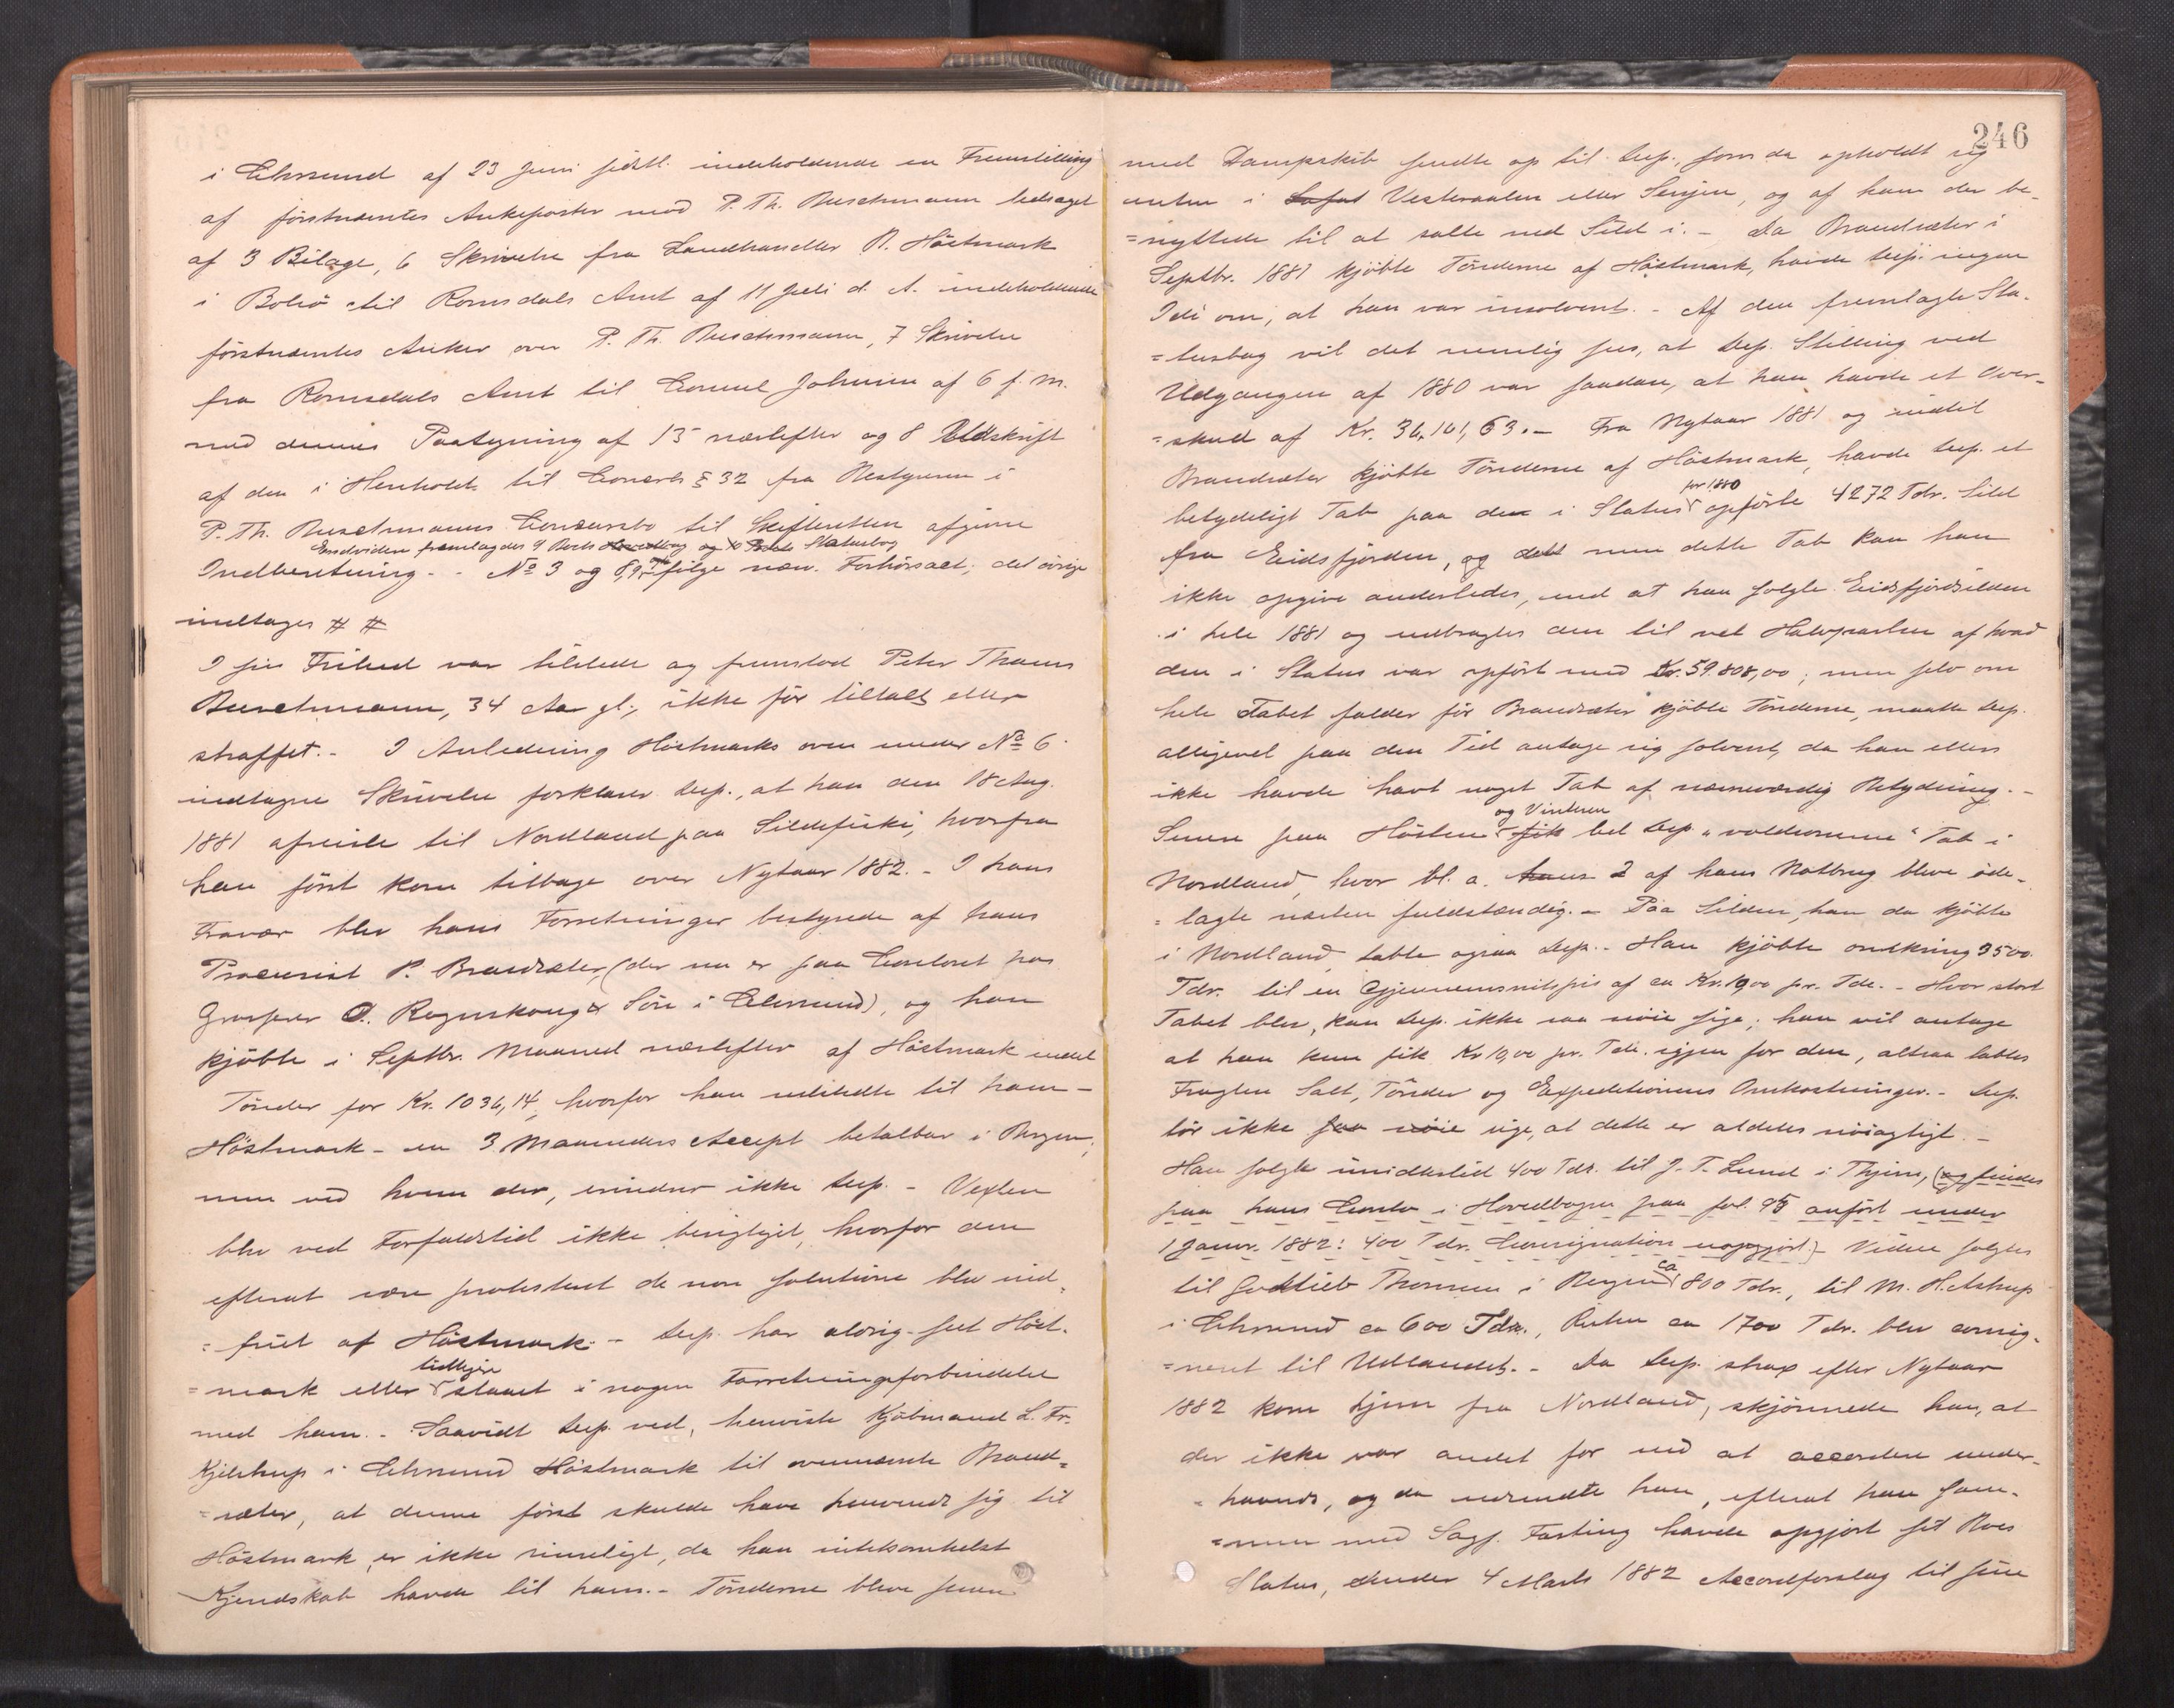 i Chrsund af 23 Juni sidstl. indeholdende en Fremstilling
af førstnævntes Ankeposter mod P. Th. Buschmann ledsaget
af 3 Bilage, 6 Skrivelse fra Landhandler B. Höstmark
i Bolsö til Romsdals Amt af 11 Juli d. A. indeholdende
førstnævntes Anker over P. Th. Buschmann, 7 Skrivelse
fra Romsdals Amt til Consul Johnsen af 6 f. M.
med dennes Paategning af 15 næstefter og 8 Udskrift
af den i Henhold til Concursl. § 32 fra Bestyreren i
P. Th. Buschmanns Concursbo til Skifteretten afgivne
Endvidere fremlagdes 9 Boets Hovedbog og 10 Boets Statusbog
Indberetning. - No 3 og 8, 9, følge nærv. Forhörsact; det övrige
indtages # #
I sin Frihed var tilstede og fremstod Peter Thams
Buschmann, 34 Aar gl., ikke för tiltalt eller
straffet. - I Anledning Höstmarks oven under No 6
indtagne Skrivelse forklarer Dep., at han den 18 Aug.
1881 afreiste til Nordland paa Sildefiske, hvorfra
han först kom tilbage over Nytaar 1882. - I hans
Fravær blev hans Forretninger bestyrede af hans
Procurist P. Brandsæter, (der nu er paa Contoret hos
Grosserer O. Rognskoug & Sön i Chrsund), og han
kjöbte i Septbr. Maaned næstefter af Höstmark endel
Tönder for Kr. 1036,14, hvorfor han udstedte til ham -
Höstmark - en 3 Maaneders Accept betalbar i Bergen,
men ved hvem der, erindrer ikke Dep. - Vexlen
blev ved Forfaldstid ikke berigtiget, hvorfor den
efterat være protesteret de non solutione blev ind-
=friet af Höstmark. - Dep. har aldrig seet Höst-
tidligere
=mark eller staaet i nogen Forretningsforbindelse
med ham. - Saavidt Dep. ved, henviste Kjöbmand L. Fr.
Kjelstrup i Chrsund Höstmark til ovennævnte Brand-
=sæter, at denne först skulde have henvendt sig til
Höstmark er ikke rimeligt, da han intetsomhelst
Kjendskab havde til ham. - Tönderne bleve senere
246
med Dampskib sendte op til Dep., som da opholdt sig
enten i Lofot Vesteraalen eller Senjen, og af ham der be-
=nyttede til at salte ned Sild i. - Da Brandsæter i
Septbr. 1881 kjöbte Tönderne af Höstmark, havde Dep. ingen
Idé om, at han var insolvent. - Af den fremlagte Sta-
=tusbog vil det nemlig sees, at Dep. Stilling ved
Udgangen af 1880 var saadan, at han havde et Over-
=skud af Kr. 36,161,63. - Fra Nytaar 1881 og indtil
Brandsæter kjöbte Tönderne af Höstmark, havde Dep. et
for 1880
betydeligt Tab paa den i Status opförte 4272 Tdr. Sild
fra Eidsfjorden, og dett men dette Tab kan han
ikke opgive anderledes, end at han solgte Eidsfjordsilden
i hele 1881 og udbragtes den til vel Halvparten af hvad
den i Status var opfört med Kr. 59.808,00; men selv om
hele Tabet falder för Brandsæter kjöbte Tönderne, maatte Dep.
alligevel paa den Tid antage sig solvent, da han ellers
ikke havde havt noget Tab af nævneværdig Betydning. -
og Vinteren
Senere paa Hösten fik led Dep. "voldsomme" Tab i
Nordland, hvor bl. a. hans 2 af hans Notbrug bleve öde-
=lagte næsten fuldstændig. - Paa Silden, han da kjöbte
i Nordland, tabte ogsaa Dep. - Han kjöbte omkring 3500
Tdr. til en Gjennemsnitspris af ca Kr. 19,00 pr. Tde. - Hvor stort
Tabet blev, kan Dep. ikke saa nöie sige; han vil antage
at han kun fik Kr 19,00 pr. Tde. igjen for den, altsaa tabtes
Fragten Salt, Tönder og Expeditionens Omkostninger. - Dep.
tör ikke saa nöie sige, at dette er aldeles nöiagtigt. -
Han solgte imidlertid 400 Tdr. til J. T. Lund i Thjem, (og findes
paa hans Conto i Hovedbogen paa fol. 95 anfört under
1 Janr. 1882: 400 Tdr. Consignation uopgjort.) - Videre solgtes
ca
til Godtlieb Thomsen i Bergen 800 Tdr., til M. H. Astrup
i Chrsund ca 600 Tdr., Resten ca 1700 Tdr. blev consig-
=neret til Udlandet. - Da Dep. strax efter Nytaar
1882 kom hjem fra Nordland, skjönnede han, at
der ikke var andet for end at accordere under-
=haands, og da udsendte han, efterat han sam-
=men med Sagf. Fasting havde opgjort sit Boes
Status, under 4 Marts 1882 Accordforslag til sine